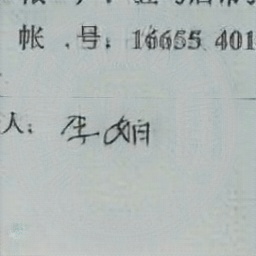 帐号：16655 401
人：李娟